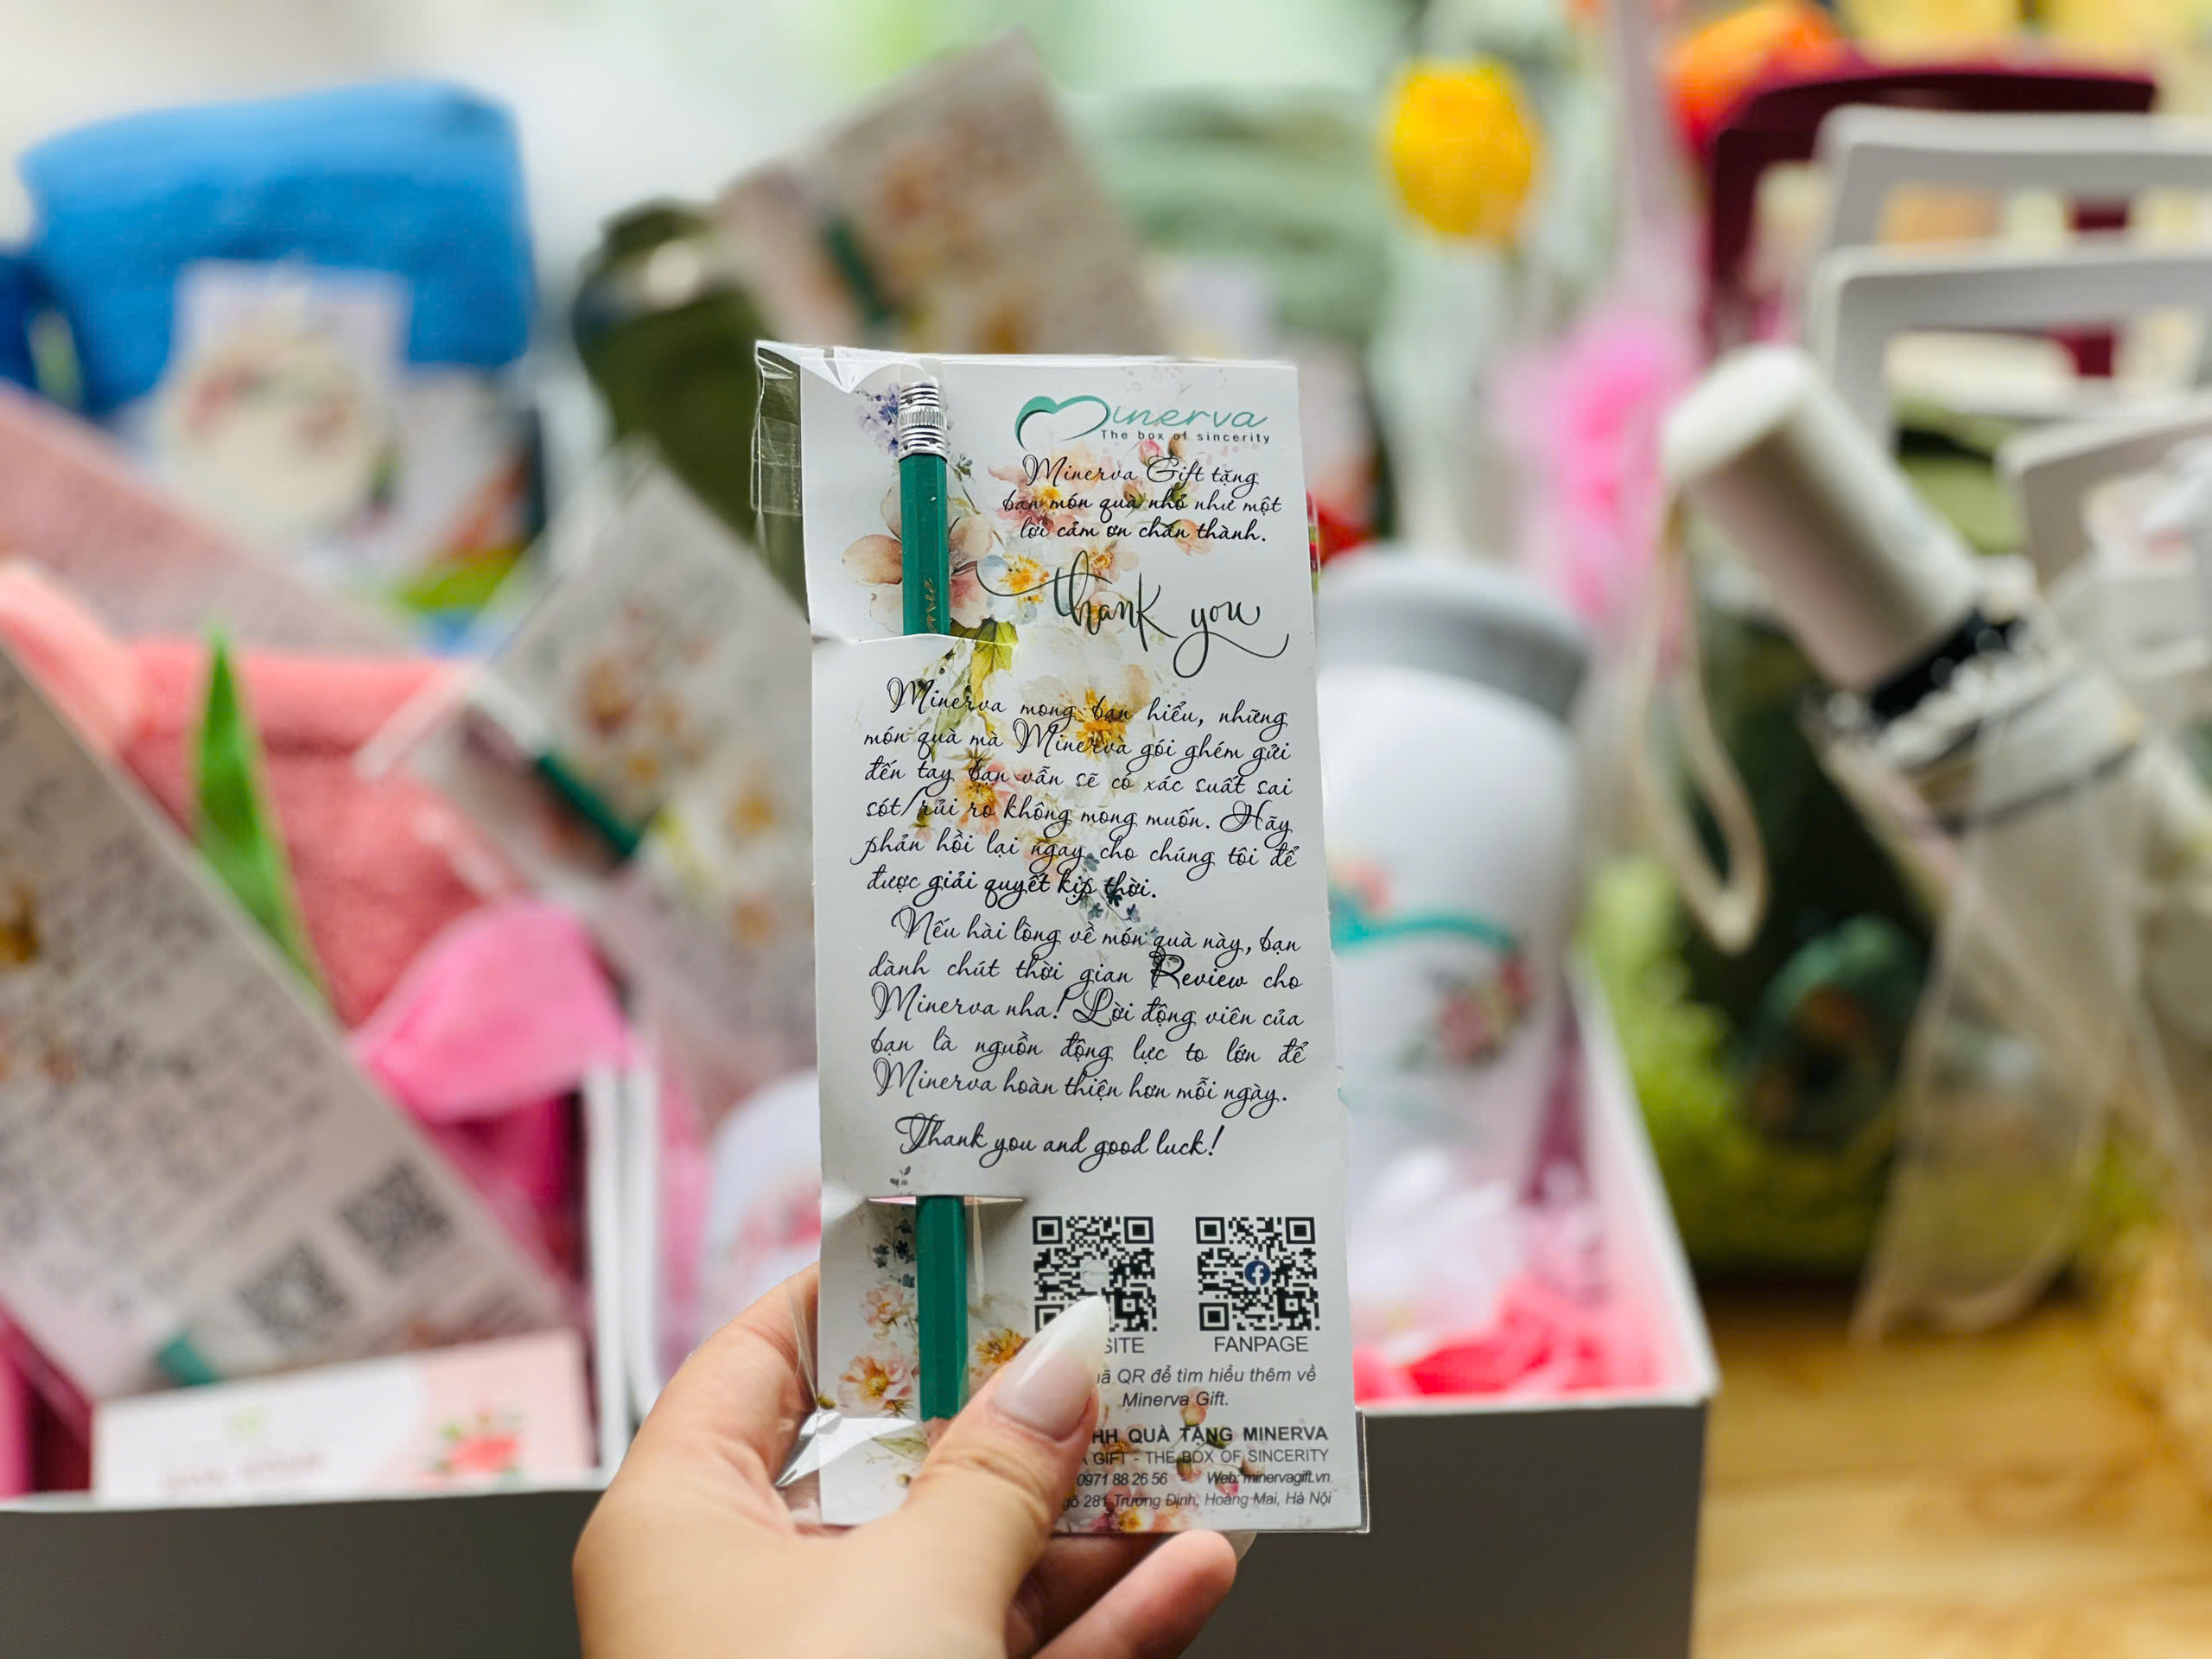 Minerva
The box of sincerity
Minerva Gift tặng
bạn món quà nhỏ như một
lời cảm ơn chân thành.
thank you
Minerva mong bạn hiểu, những
món quà mà Minerva gói ghém gửi
đến tay bạn vẫn sẽ có xác suất sai
sót/rủi ro không mong muốn. Hãy
phản hồi lại ngay cho chúng tôi để
được giải quyết kịp thời.
Nếu hài lòng về món quà này, bạn
dành chút thời gian Review cho
Minerva nha! Lời động viên của
bạn là nguồn động lực to lớn để
Minerva hoàn thiện hơn mỗi ngày.
Thank you and good luck!
SITE FANPAGE
ã QR để tìm hiểu thêm về
Minerva Gift.
HH QUÀ TẶNG MINERVA
GIFT - THE BOX OF SINCERITY
0971 88 26 56 - Web: minervagift.vn
gõ 281 Trương Định, Hoàng Mai, Hà Nội